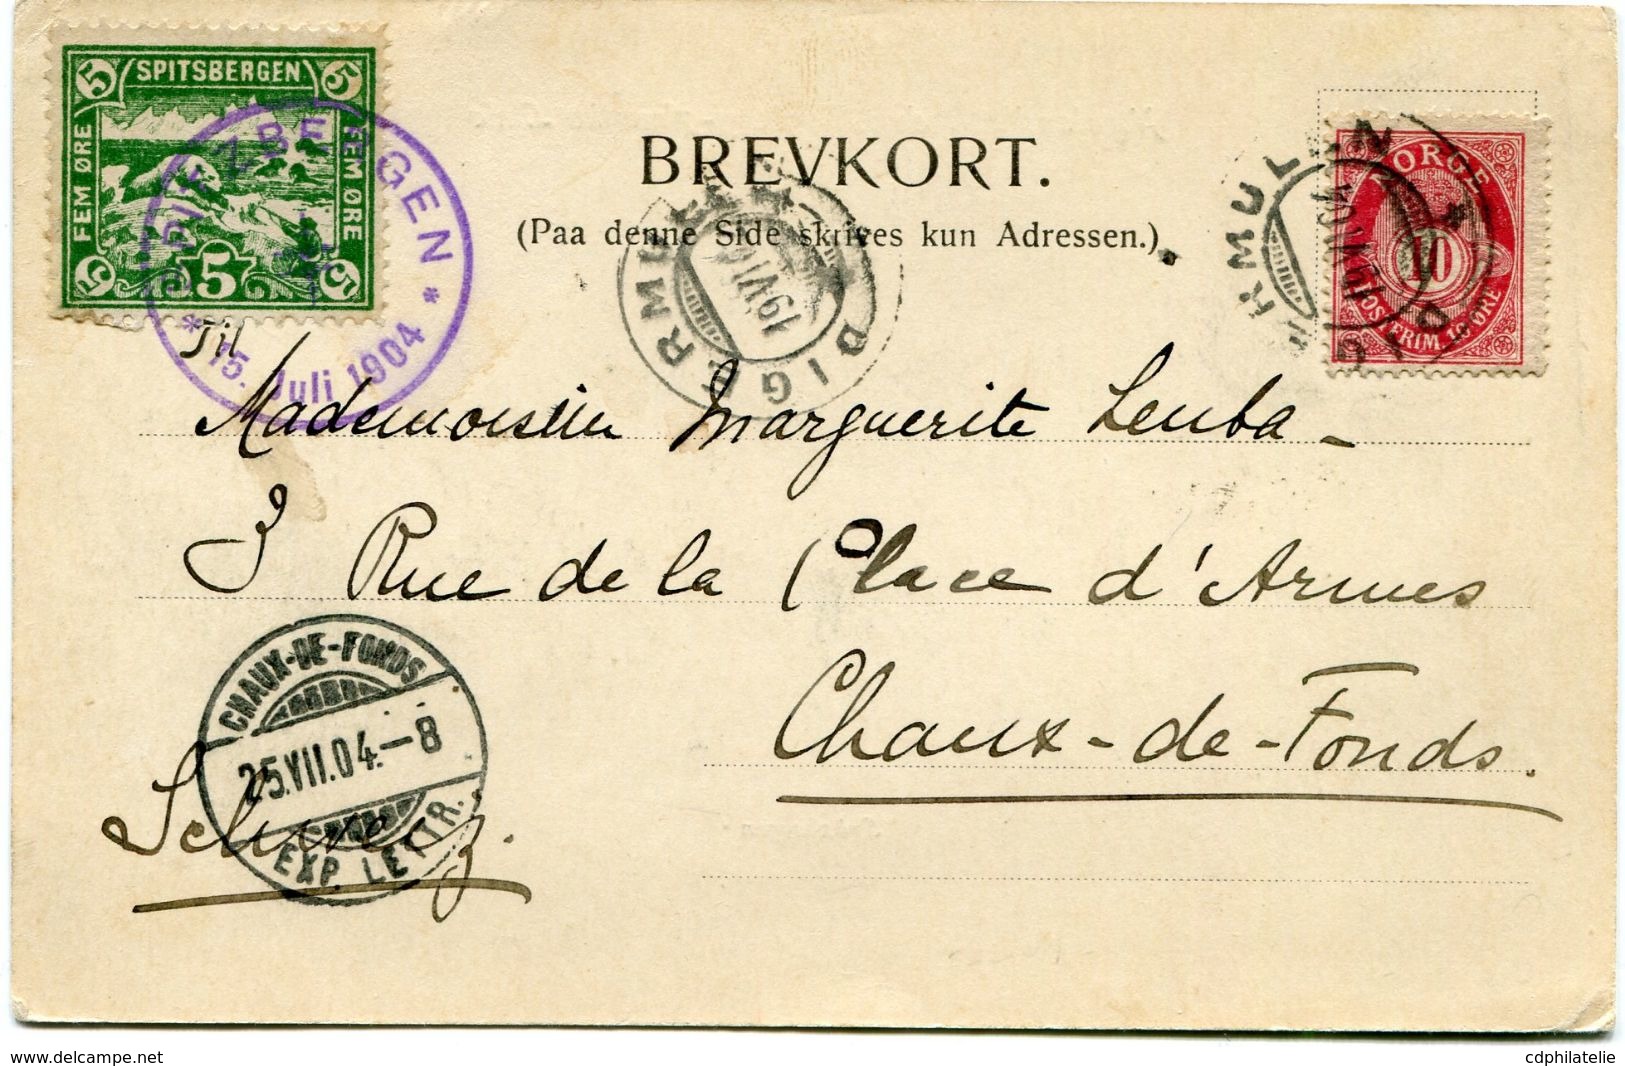 5 SPITSBERGEN 5
FEM ØRE
FEM ØRE
5 5 5
SPITZBERGEN
* 15. Juli 1904 *
BREVKORT.
(Paa denne Side skrives kun Adressen.)
DIGERMULEN
19 VII 04
DIGERMULEN
19 VII 04
NORGE
10
POSTFRIM. 10 ØRE
Til
Mademoiselle Marguerite Leuba
3 Rue de la Place d'Armes
Chaux-de-Fonds.
Schweiz.
CHAUX-DE-FONDS
25.VII.04.-8
EXP. LETTR.
www.delcampe.net
cdphilatelie